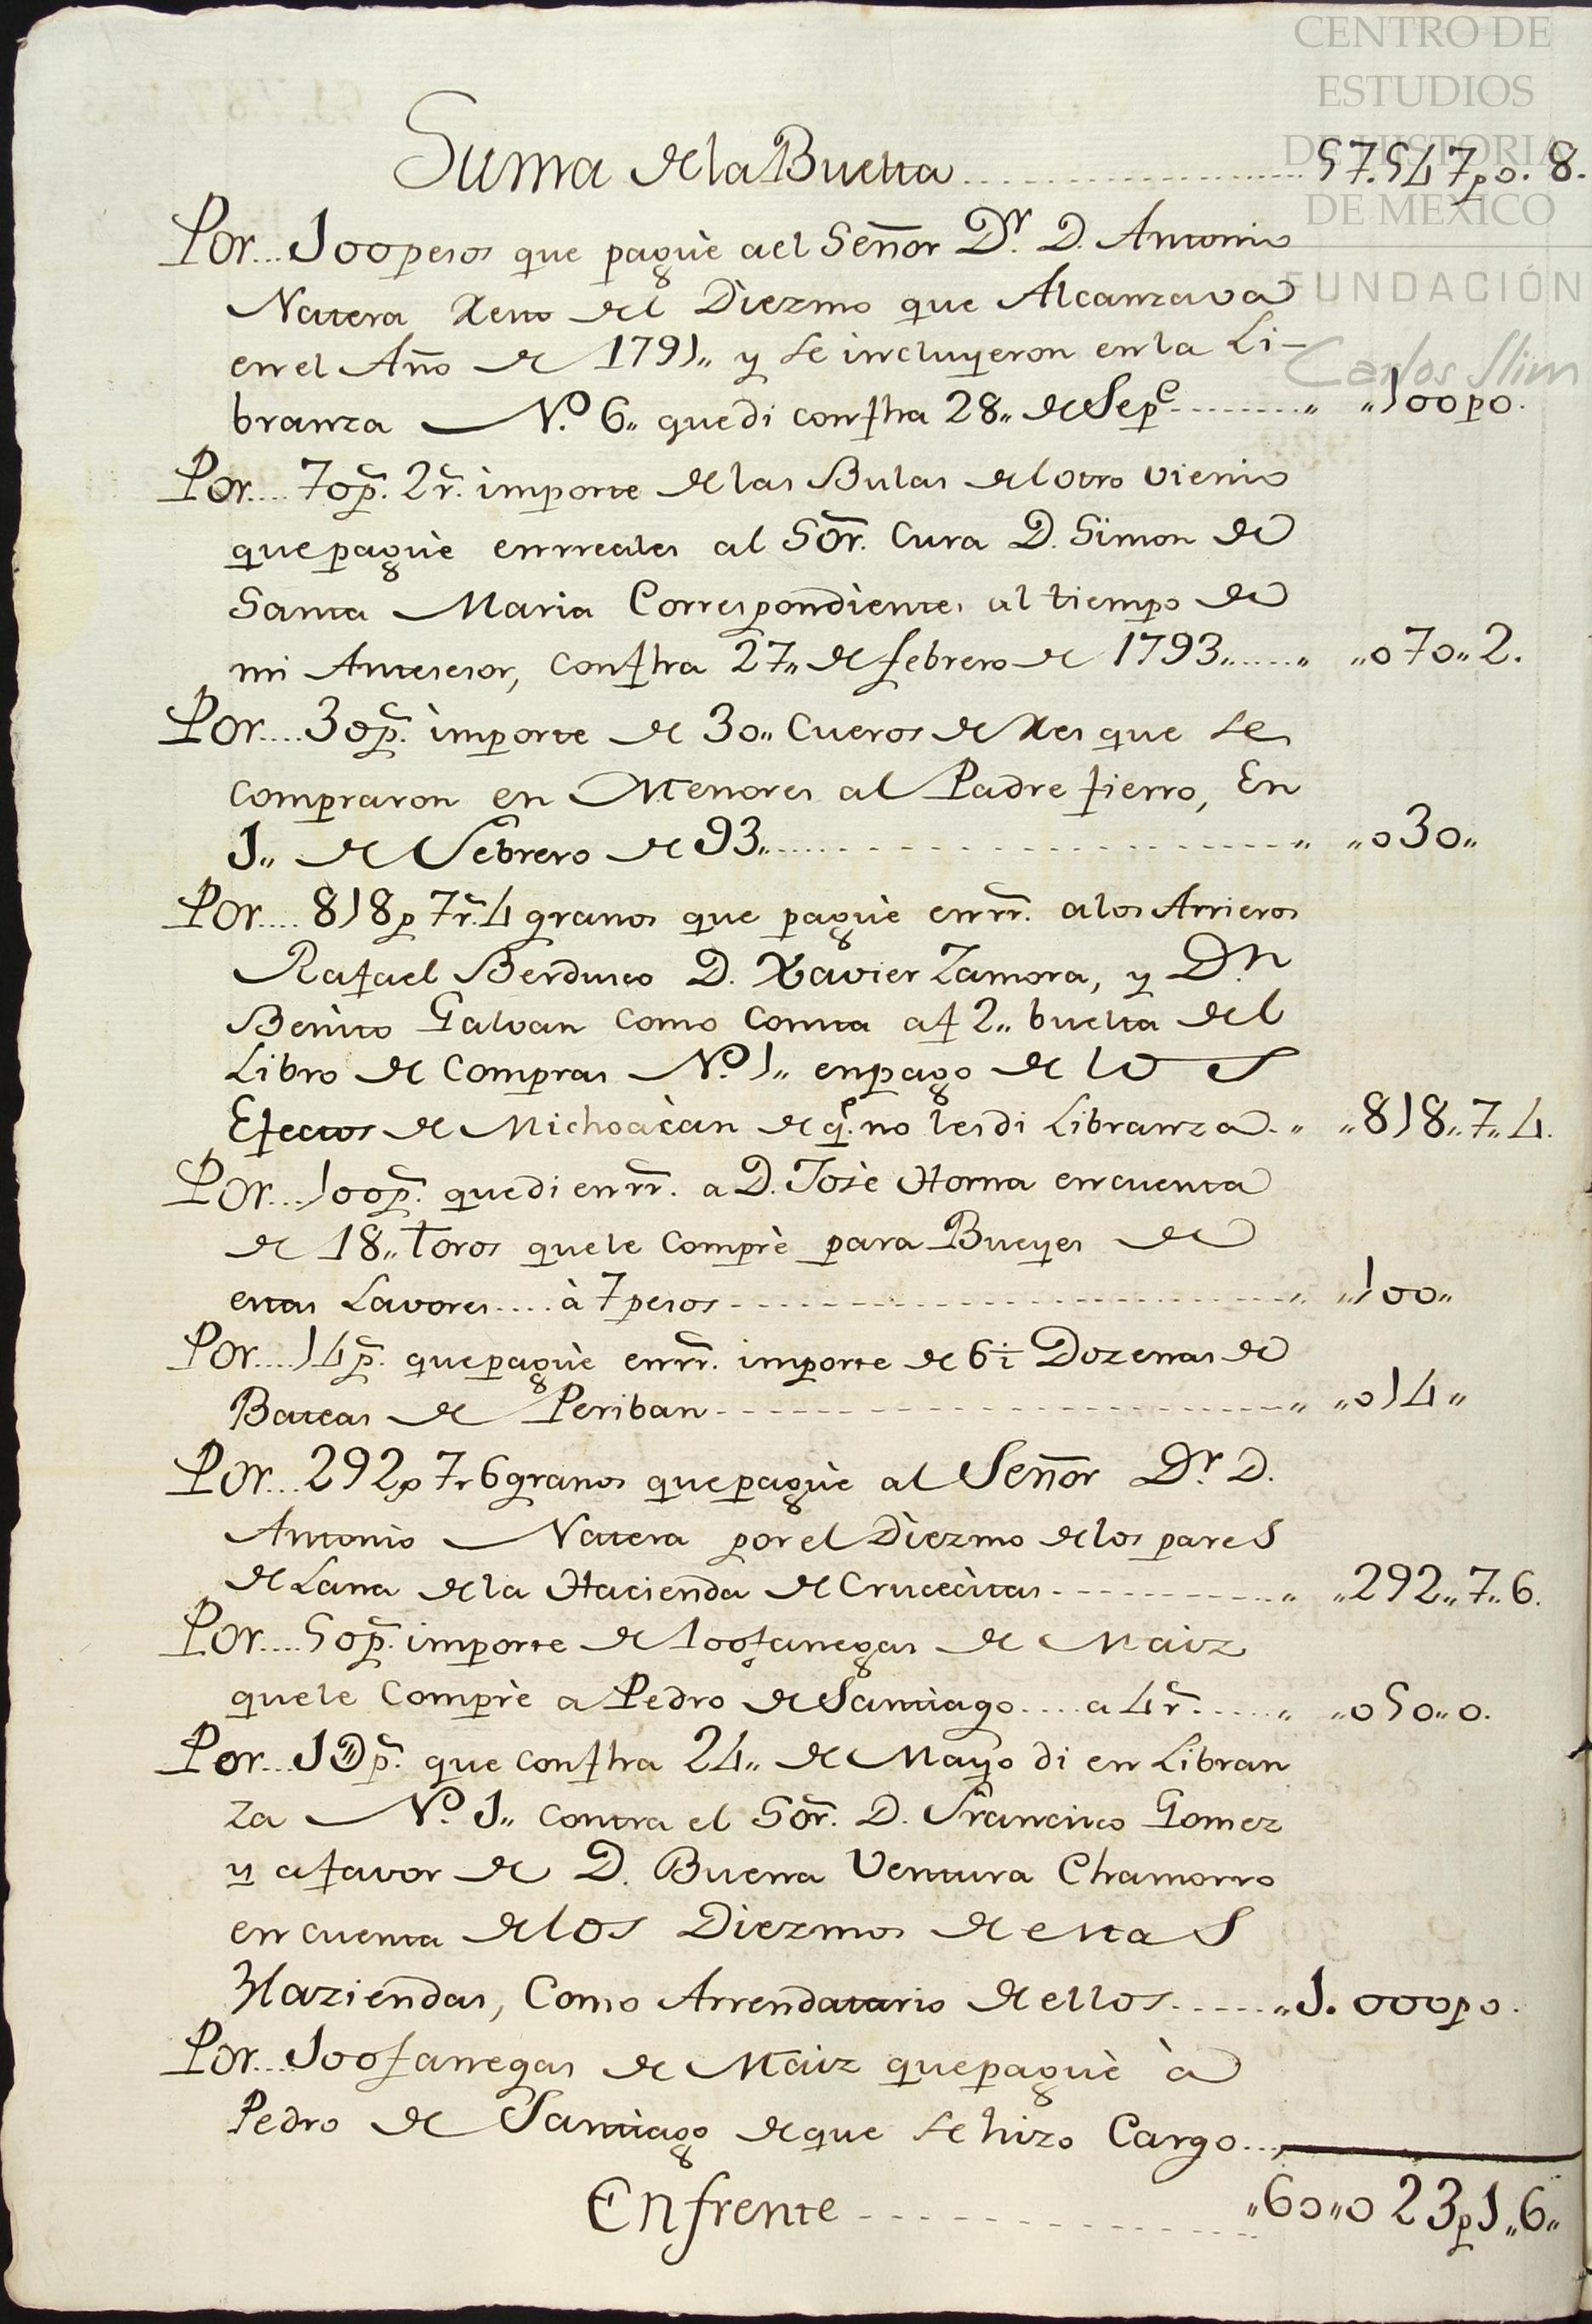 CENTRO DE
ESTUDIOS
DE HISTORIA
DE MEXICO
FUNDACIÓN
Carlos Slim
Suma de la Buelta 57.547 po. 8.
Por... 100 pesos que paguè ael Señor Dr. D. Antonio
Natera Resto del Diezmo que Alcanzava
en el Año de 1791,, y se incluyeron en la Li-
branza No. 6,, que di con fha 28,, de Sepe ,, ,,100 po.
Por.... 70 p. 2 r. importe de las Bulas del otro vienio
que paguè en rreales al Sor. Cura D. Simon de
Santa Maria Correspondientes al tiempo de
mi Antesesor, con fha 27,, de febrero de 1793,, ,, ,,070,,2.
Por.... 30 p. importe de 30,, Cueros de Res que se
compraron en Menores al Padre fierro, En
1,, de Febrero de 93,, ,, ,,030,,
Por.... 818 p 7 r. 4 granos que paguè en rr. a los Arrieros
Rafael Berdusco D. Xavier Zamora, y Dn.
Benito Galvan como consta a f 2,, buelta del
Libro de Compras No. 1,, en pago de los
Efectos de Michoacàn de q. no les di Libranza. ,, ,,818,,7,,4.
Por... 100 p. que di en rr. a D. Josè Horna en cuenta
de 18,, toros que le Comprè para Bueyes de
estas Lavores.... à 7 pesos ,, ,,100,,
Por.... 14 p. que paguè en rr. importe de 6 ½ Dozenas de
Bateas de Periban ,, ,,014,,
Por... 292 p 7 r 6 granos que paguè al Señor Dr. D.
Antonio Natera por el Diezmo de los pares
de Lana de la Hacienda de Crucecitas ,, ,,292,,7,,6.
Por.... 50 p. importe de 100 fanegas de Maiz
que le Comprè a Pedro de Santiago.... a 4 r. ,, ,,050,,0.
Por... 1 D p. que con fha 24,, de Mayo di en Libran
za No. 1,, contra el Sor. D. Francisco Gomez
y a favor de D. Buena Ventura Chamorro
en cuenta de los Diezmos de estas
Haziendas, Como Arrendatario de ellos ,,1.000 po.
Por... 100 fanegas de Maiz que paguè à
Pedro de Santiago de que se hizo Cargo...
Enfrente ,,60,,023 p 1,,6,,